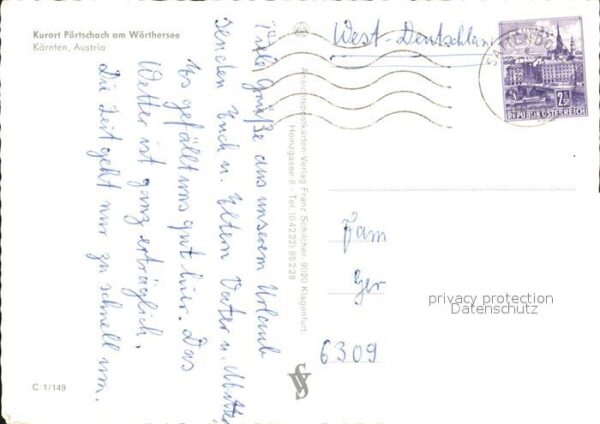 Kurort Pörtschach am Wörthersee
Kärnten, Austria
Viele Grüße aus unserem Urlaub
senden Euch u. Eltern Vater u. Mutter
Es gefällt uns gut hier. Das
Wetter ist ganz erträglich.
Die Zeit geht nur zu schnell um.
C 1/149
Ansichtspostkarten-Verlag Franz Schilcher, 9020 Klagenfurt,
Heinzgasse 6 - Tel. (04222) 85 2 28
West-Deutschland
SATTENDO
REPUBLIK ÖSTERREICH
Fam
Ger
6309
privacy protection
Datenschutz